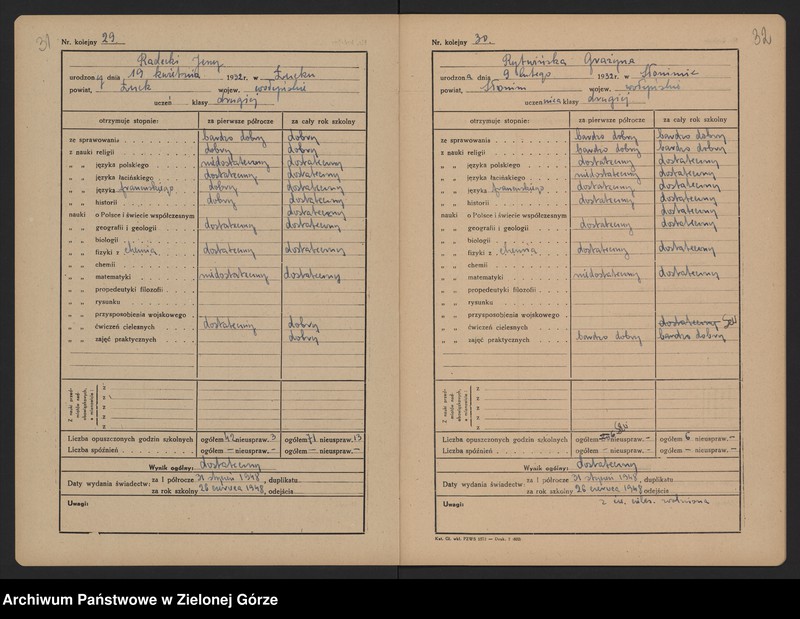 31
Nr. kolejny 29
Radecki Jerzy
urodzony dnia 19 kwietnia 1932 r. w Łucku
powiat, Łuck wojew. wołyńskie
uczeń klasy drugiej
otrzymuje stopnie: za pierwsze półrocze za cały rok szkolny
ze sprawowania bardzo dobry dobry
z nauki religii dobry dobry
„ „ języka polskiego niedostateczny dostateczny
„ „ języka łacińskiego dostateczny dostateczny
„ „ języka francuskiego dobry dostateczny
„ „ historii dobry dostateczny
nauki o Polsce i świecie współczesnym dostateczny
„ „ geografii i geologii dostateczny dostateczny
„ „ biologii
„ „ fizyki z chemią dostateczny dostateczny
„ „ chemii
„ „ matematyki niedostateczny dostateczny
„ „ propedeutyki filozofii
„ „ rysunku
„ „ przysposobienia wojskowego
„ „ ćwiczeń cielesnych dostateczny dobry
„ „ zajęć praktycznych dobry
Z nauki przedmiotów nadobowiązkowych, a mianowicie:
Liczba opuszczonych godzin szkolnych ogółem 42 nieuspraw. 3 ogółem 71 nieuspraw. 13
Liczba spóźnień ogółem — nieuspraw. — ogółem — nieuspraw. —
Wynik ogólny: dostateczny
Daty wydania świadectw: za I półrocze 31 styczń 1948, duplikatu
za rok szkolny 26 czerwca 1948, odejście
Uwagi:
32
Nr. kolejny 30
Rytwińska Grażyna
urodzona dnia 9 lutego 1932 r. w Słonimie
powiat, Słonim wojew. wołyńskie
uczennica klasy drugiej
otrzymuje stopnie: za pierwsze półrocze za cały rok szkolny
ze sprawowania bardzo dobry bardzo dobry
z nauki religii bardzo dobry bardzo dobry
„ „ języka polskiego dostateczny dostateczny
„ „ języka łacińskiego niedostateczny dostateczny
„ „ języka francuskiego dostateczny dostateczny
„ „ historii dostateczny dostateczny
nauki o Polsce i świecie współczesnym dostateczny
„ „ geografii i geologii dostateczny dostateczny
„ „ biologii
„ „ fizyki z chemią dostateczny dostateczny
„ „ chemii
„ „ matematyki niedostateczny dostateczny
„ „ propedeutyki filozofii
„ „ rysunku
„ „ przysposobienia wojskowego
„ „ ćwiczeń cielesnych dostateczny
„ „ zajęć praktycznych bardzo dobry bardzo dobry
Z nauki przedmiotów nadobowiązkowych, a mianowicie:
Liczba opuszczonych godzin szkolnych ogółem 6 nieuspraw. — ogółem 6 nieuspraw. —
Liczba spóźnień ogółem — nieuspraw. — ogółem — nieuspraw. —
Wynik ogólny: dostateczny
Daty wydania świadectw: za I półrocze 31 styczń 1948, duplikatu
za rok szkolny 26 czerwca 1948 odejście
Uwagi: z ćw. cieles. zwolniona
Archiwum Państwowe w Zielonej Górze